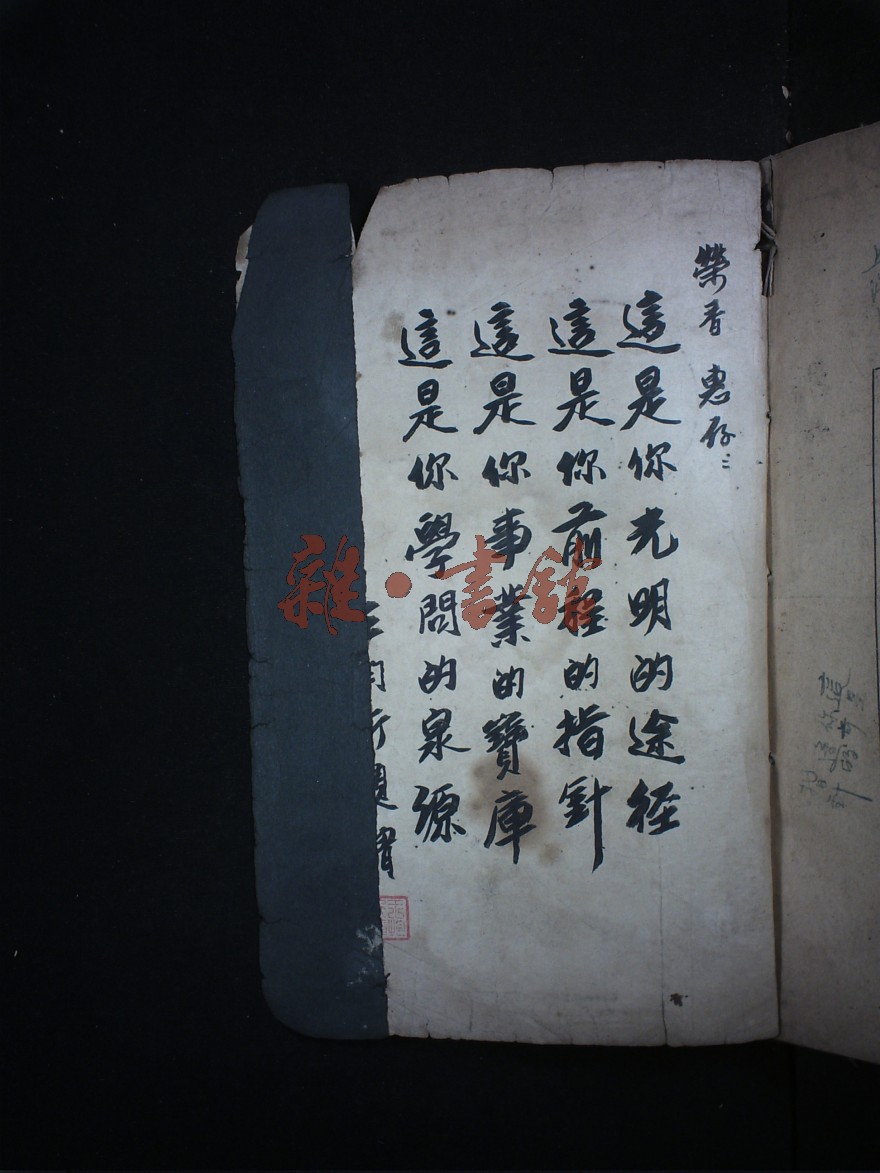 榮香 惠存：
這是你光明的途径
這是你前程的指針
這是你事業的寶庫
這是你學問的泉源
雜·書館